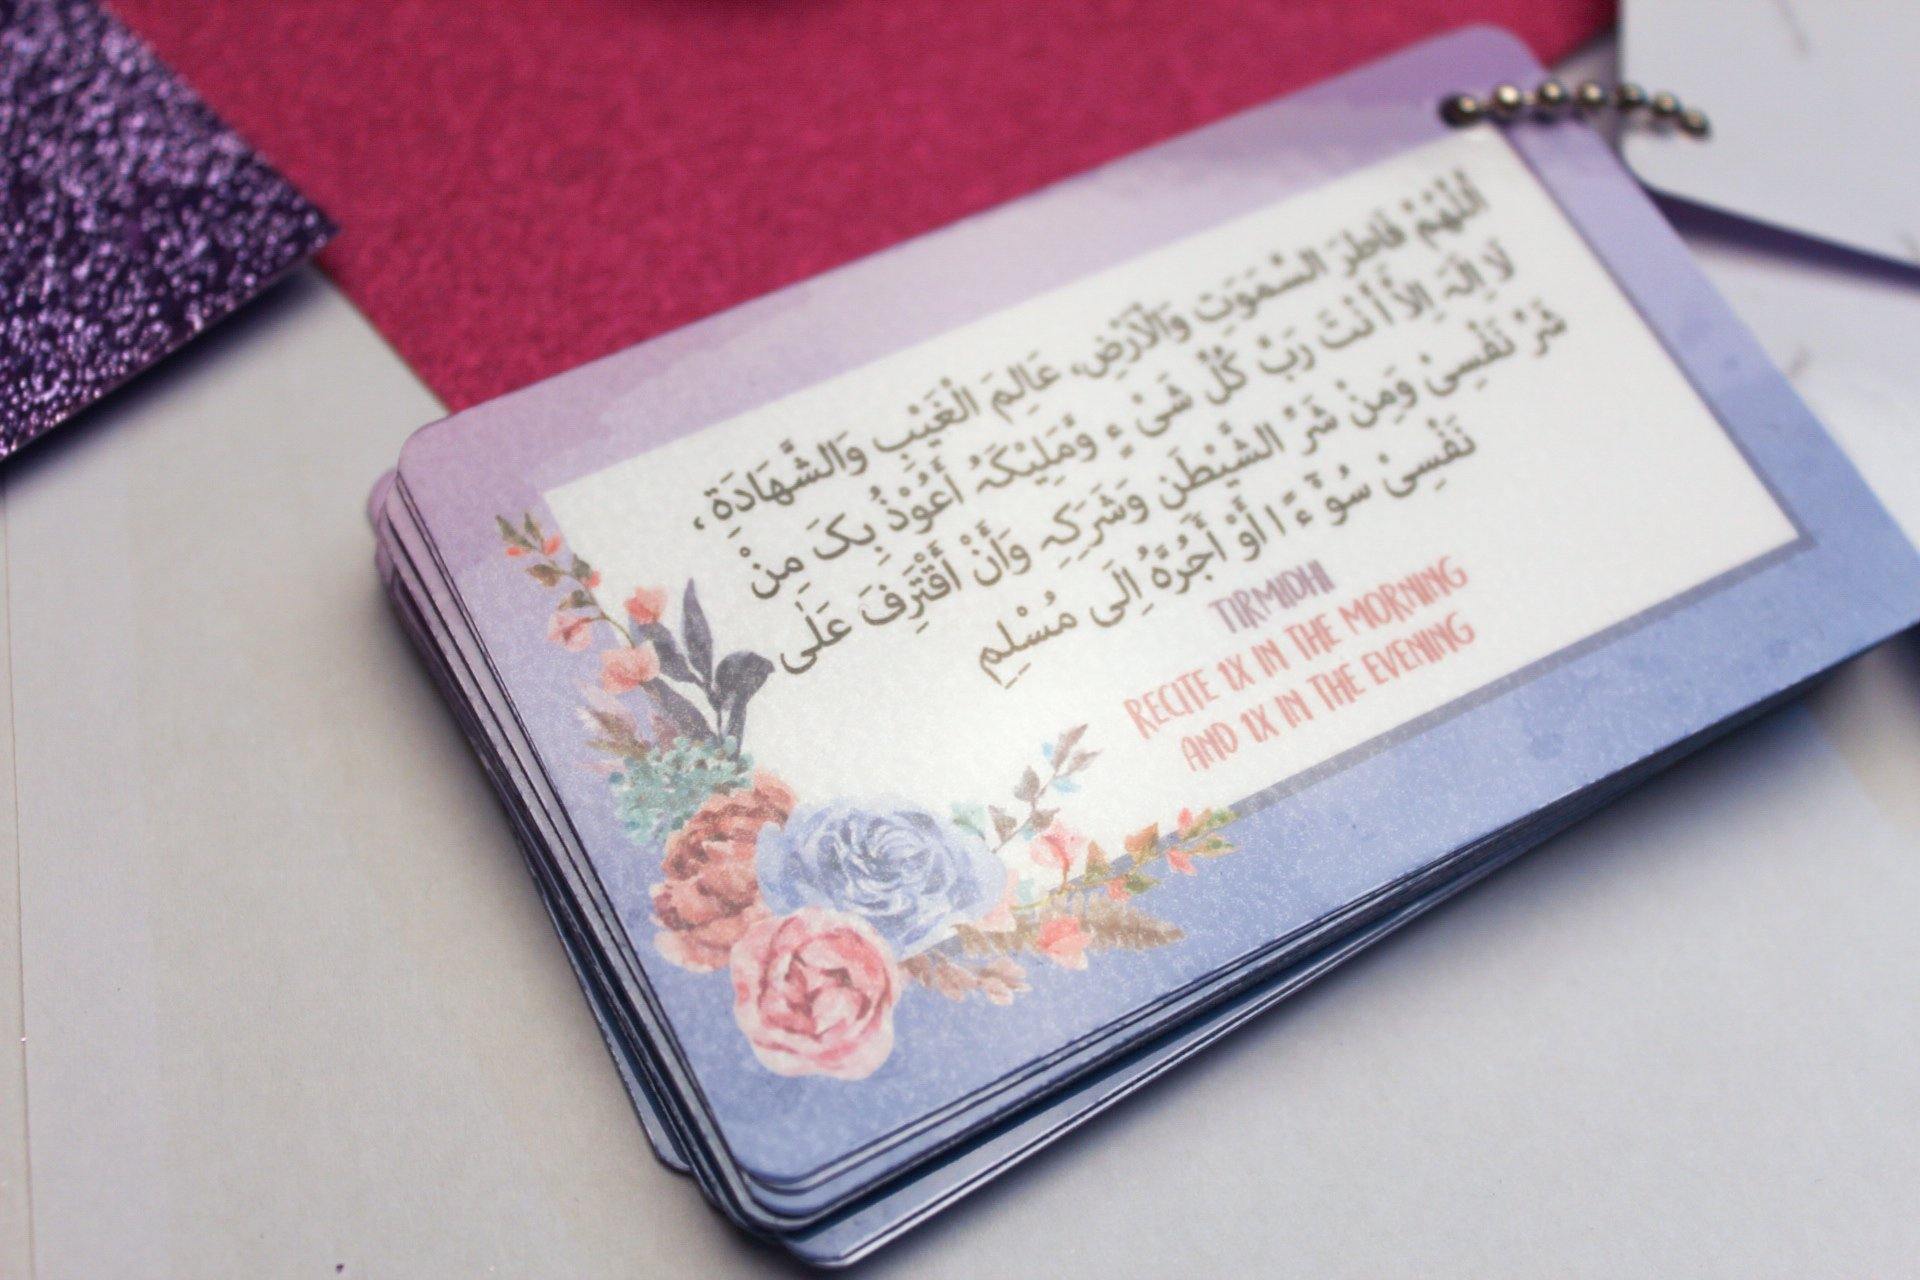 اَللّٰهُمَّ فَاطِرَ السَّمٰوٰتِ وَالْاَرْضِ، عَالِمَ الْغَيْبِ وَالشَّهَادَةِ،
لَا اِلٰهَ اِلَّا أَنْتَ رَبَّ كُلِّ شَیْءٍ وَّمَلِيْكَهُ أَعُوْذُ بِكَ مِنْ
شَرِّ نَفْسِیْ وَمِنْ شَرِّ الشَّيْطٰنِ وَشَرَكِهِ وَأَنْ أَقْتَرِفَ عَلٰى
نَفْسِیْ سُوْٓءًا أَوْ أَجُرَّهُ اِلٰى مُسْلِمٍ
TIRMIDHI
RECITE 1X IN THE MORNING
AND 1X IN THE EVENING